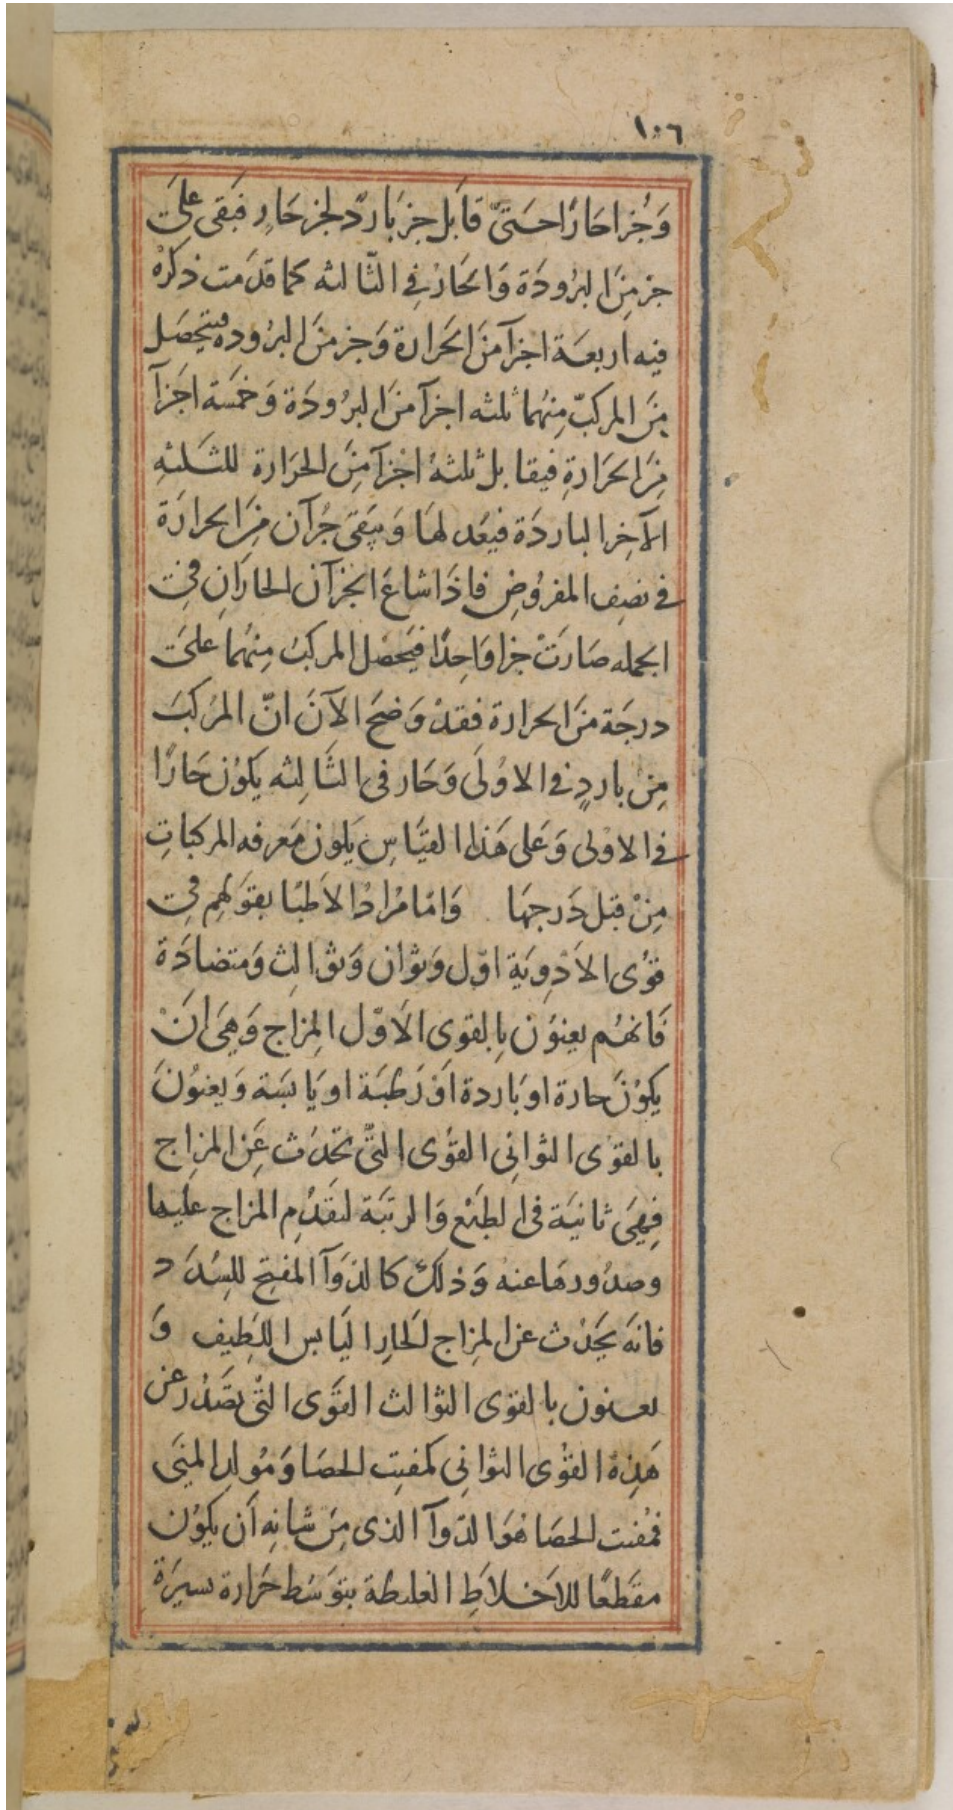 ١٠٦
وَجُزاحَارًا حَتىّ قابَل جز بَاردّ لجز حَارٍ فبَقى علىَ
جز مِنَ البرُودَة وَالحَارُ فِي الثّالثه كما قدّمت ذكرهُ
فيه اربعَة اجزآ منَ الحَرارة وَجز منَ البرُوده فيتحصَل
مِنَ المركبّ مِنهُما ثلثه اجزآ منَ البرُودَة وَخمَسَة اجَزآ
مِنَ الحَرَارةِ فيقابل ثلثةُ اجْزآ مِنَ الحَرَارة للثَلثةِ
الآخِر الباردَة فيعُدلهَا وَيبَقى جُزآن مِنَ الحرارَة
في نصِف المفروُضِ فاذَا شاعَ الجزآن الحارَانِ فيِ
الجمله صَارَتْ جزا وَاحِدًا فيَحصُل المركبُ مِنهُما علىَ
درجَة منَ الحرارة فقدْ وَضحَ الآنَ انّ المرَكبَ
مِنْ باردٍ في الاوُلَى وَحَار فى الثَّالِثه يَكوُن حَارًا
في الاوْلى وَعَلى هَذا القيَاسِ يَكون مَعرفه المركباتِ
مِنْ قبَل دَرجهَا وَامّا مُرادُ الاَطبّا بقوَلهِم فيِ
قوُى الاَدْوِيَة اوّل وَثوَان وَثوالِث وَمتضادَة
فَانهُم يعِنوُن بِالقوى الاَوّل المِزاج وَهِىَ انَْ
يكوُنَ حارة او بَاردة اَوْ رَطبَة او يَابسَة وَيعنوُنَ
بالقوْى الثوانِى القوُى التّى تحدُث عَنِ المزِاج
فِهىَ ثانيَة فى الطبَع وَالرتبَة لتقدُّمِ المزاج عليها
وصدُورهَا عنه وَذلك كالدوَآ المفتح للسِّدَد
فانهَ يحَدُث عنِ المِزاج الحَارِ اليَابس اللَطيِف وَ
يعنون بالقوى الثوالث القوَى التْى تصَدُر عن
هَذِهْ القوُى الثوانِي كمفتِت الحصَا وَمُولِد المنِىَ
فمُفتت الحصَا هُوَ الدّوآ الذى مِنَ شانِهِ اَن يكوُن
مقَطعًا للاَخلاَطِ الغليظة بتوَسُط حَرارة يسيرَة